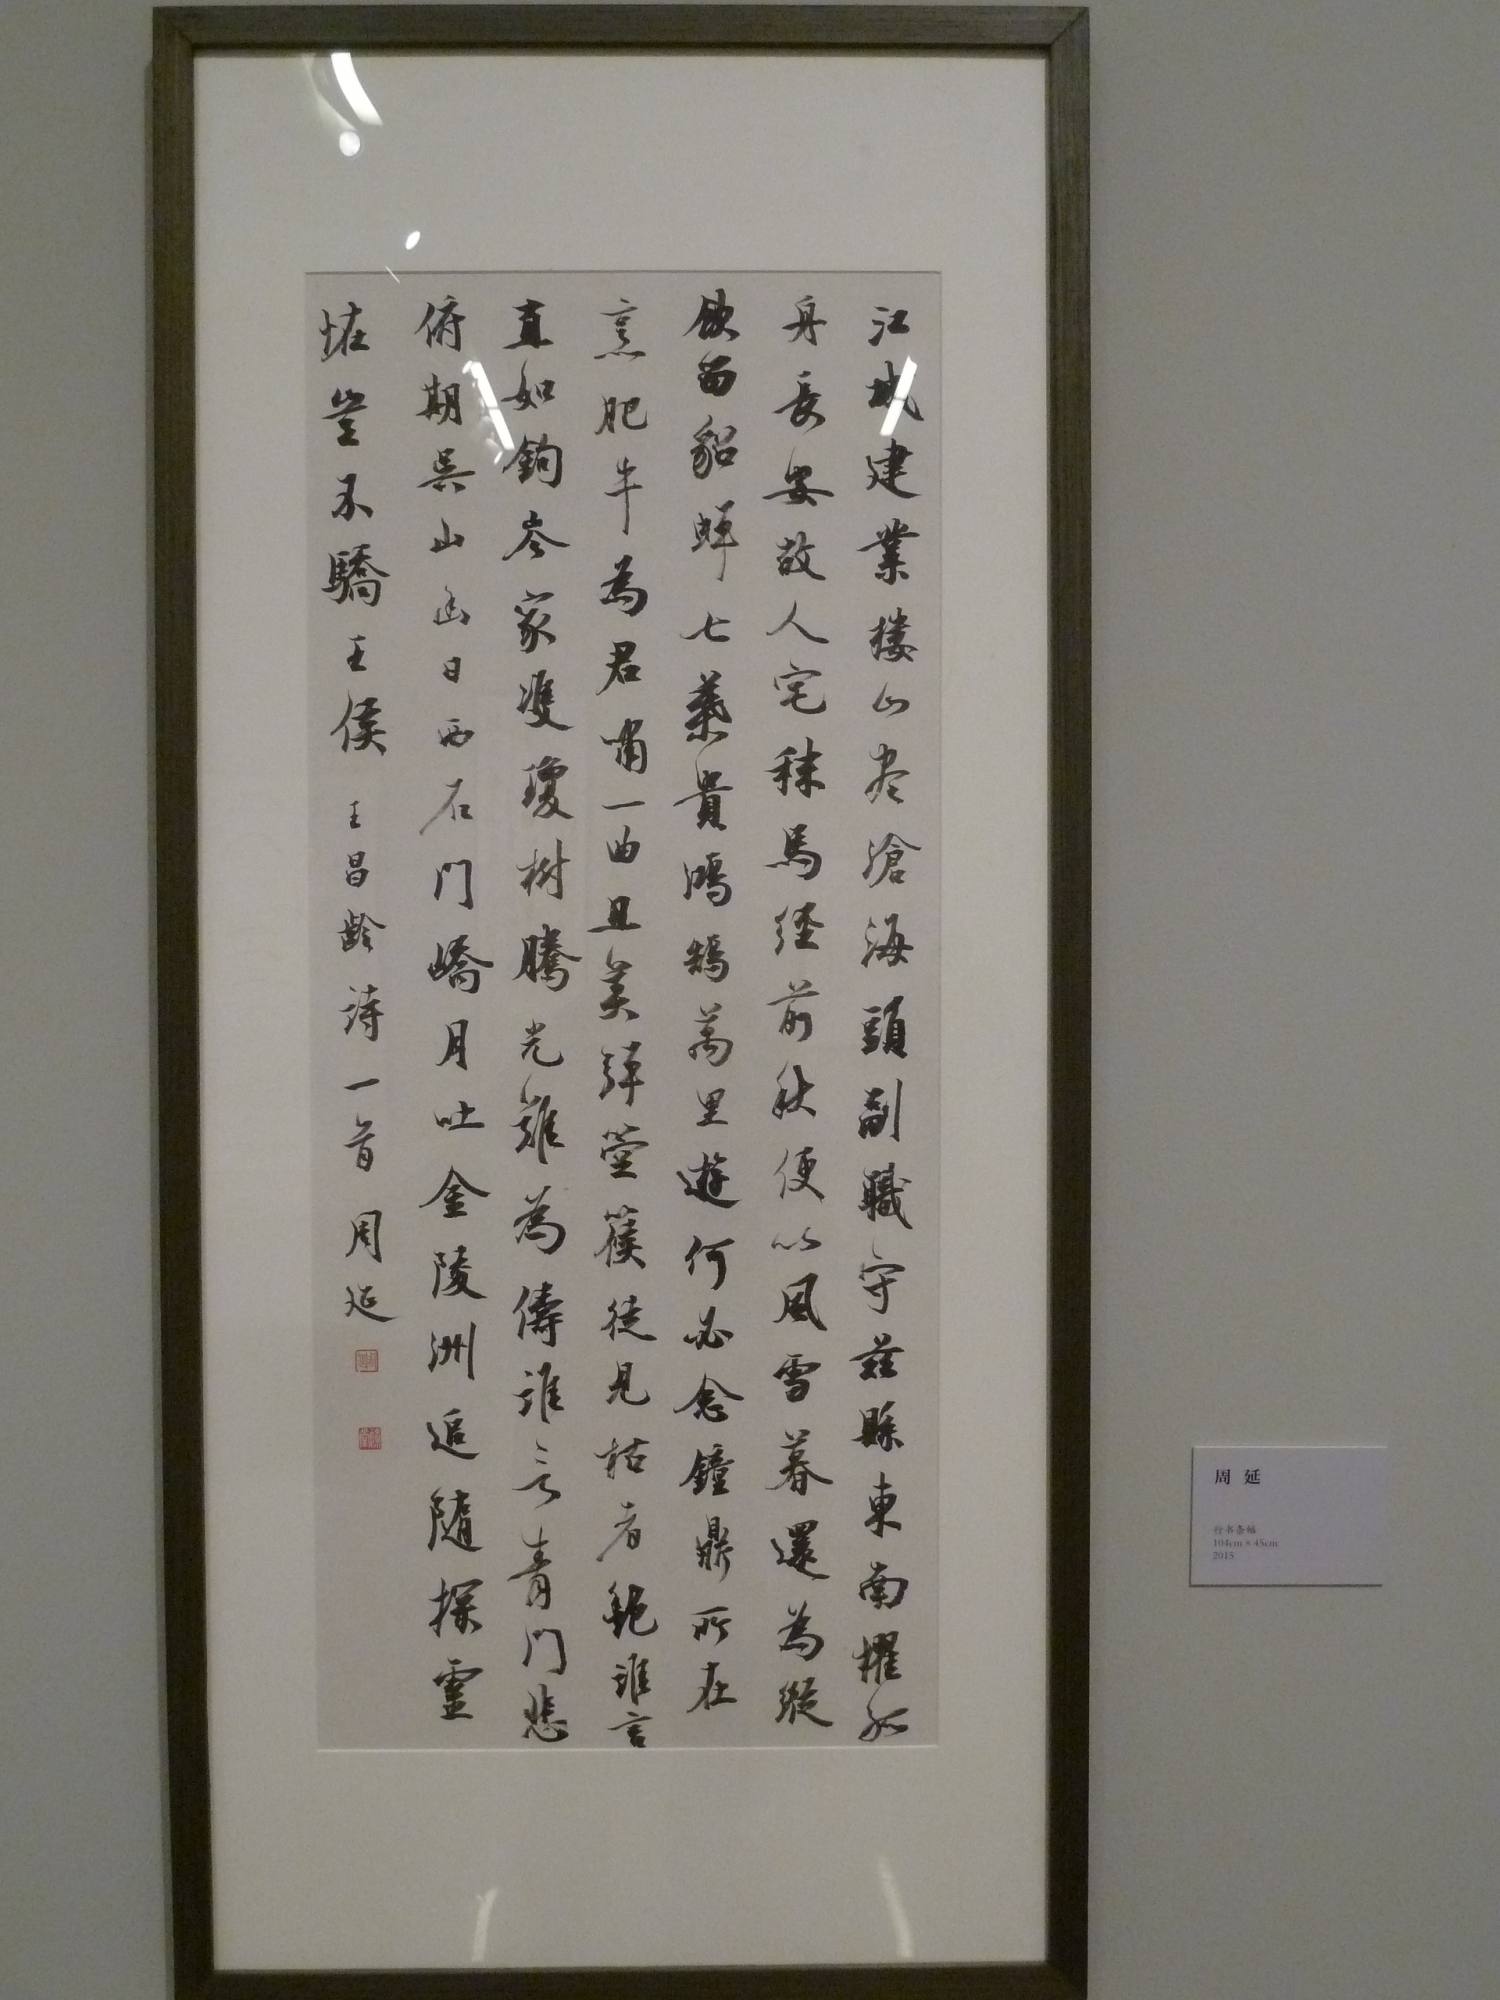 江城建業樓山盡滄海頭副職守茲縣東南櫂孤
舟長安故人宅秣馬經前秋便以風雪暮還為縱
飲留貂蟬七葉貴鴻鵠萬里遊何必念鐘鼎所在
烹肥牛為君嘯一曲且莫彈箜篌徒見枯者艷誰言
直如鉤岑家雙瓊樹騰光難為儔誰言青門悲
俯期吳山幽日西石門嶠月吐金陵洲追隨探靈
怪豈不驕王侯 王昌齡詩一首 周延
周 延
行书条幅
104cm × 45cm
2015